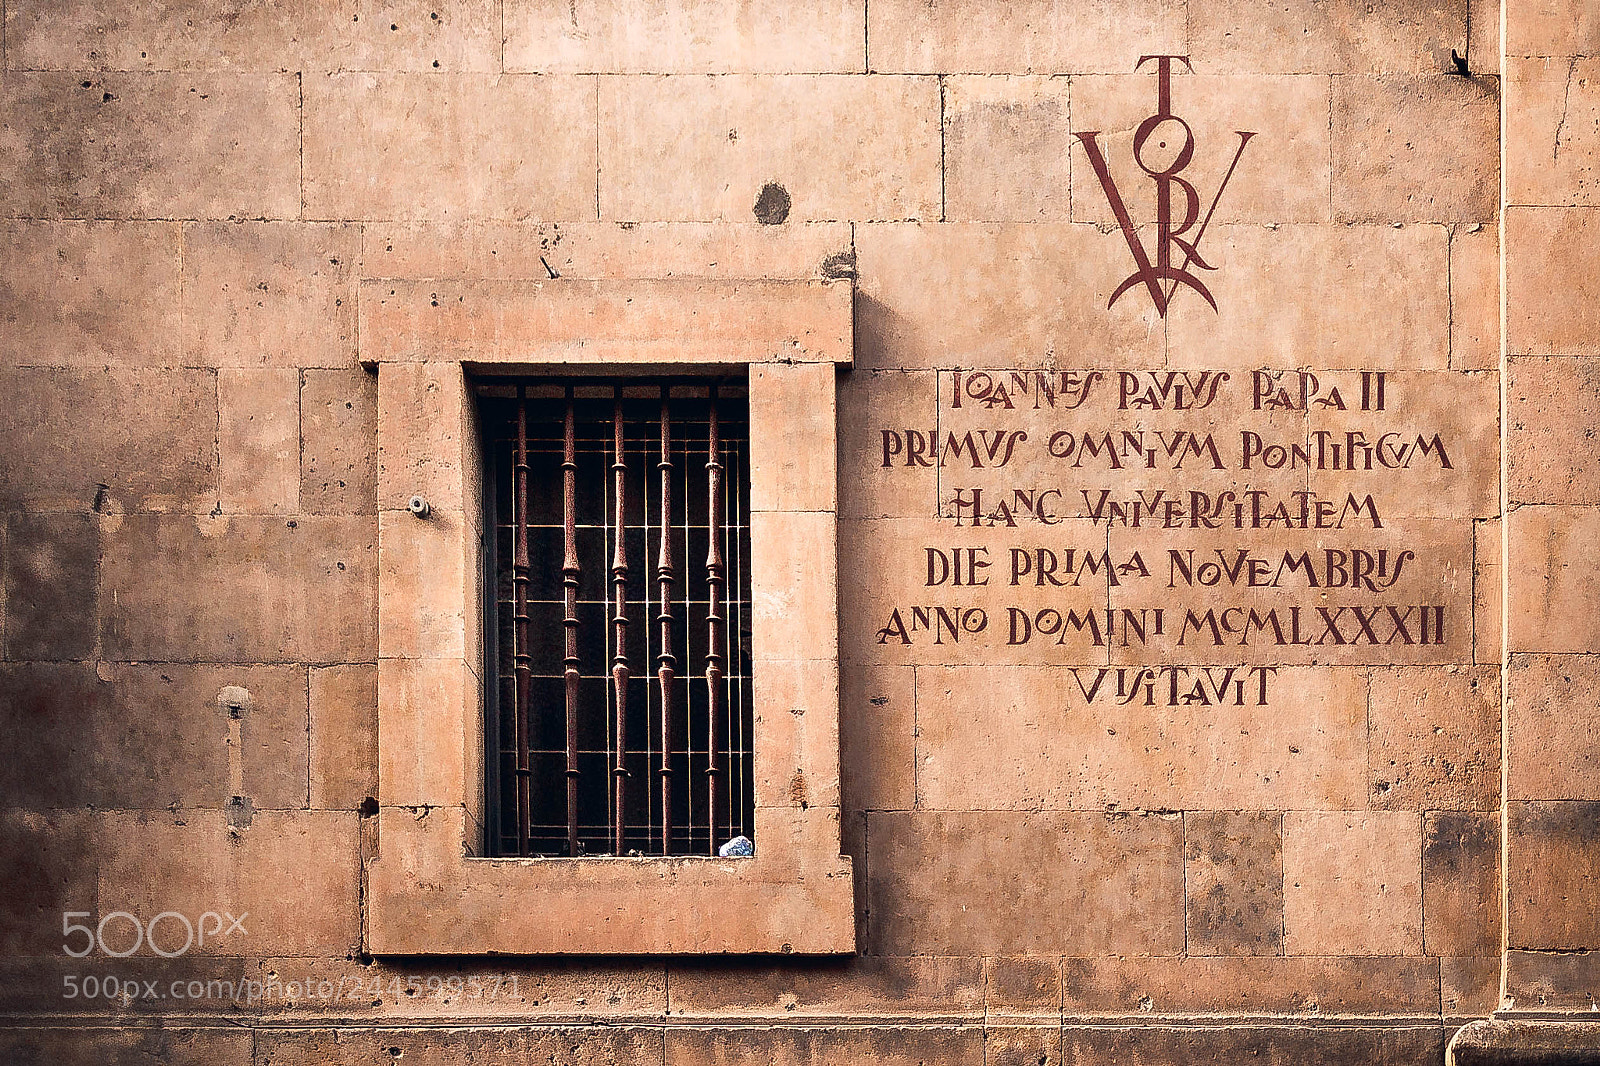 IOANNES PAVLVS PAPA II
PRIMVS OMNIVM PONTIFICVM
HANC VNIVERSITATEM
DIE PRIMA NOVEMBRIS
ANNO DOMINI MCMLXXXII
VISITAVIT
500px
500px.com/photo/244599571